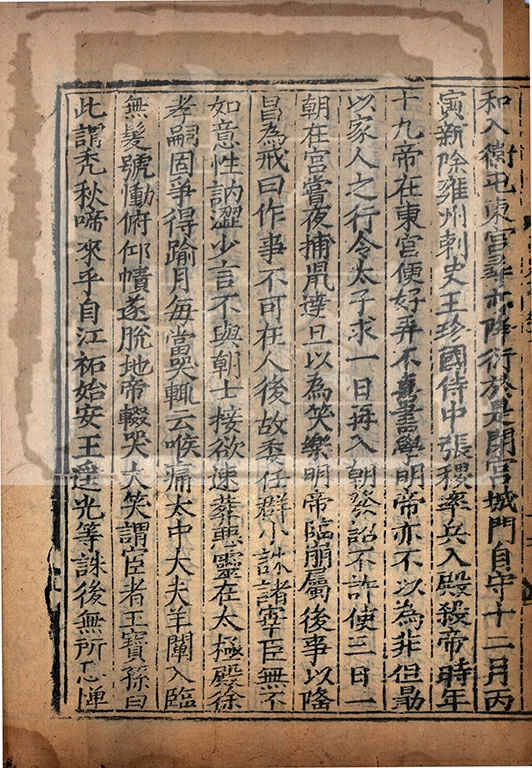 和入衛屯東宮尋亦降衍於是閉宮城門自守十二月丙
寅新除雍州刺史王珍國侍中張稷率兵入殿殺帝時年
十九帝在東宮便好弄不喜書學明帝亦不以為非但勗
以家人之行令太子求一日再入朝發詔不許使三日一
朝在宮嘗夜捕鼠達旦以為笑樂明帝臨崩屬後事以隆
昌為戒曰作事不可在人後故委任群小誅諸宰臣無不
如意性訥澀少言不與朝士接欲速葬惡靈在太極殿徐
孝嗣固爭得踰月每當哭輒云喉痛太中大夫羊闡入臨
無髮號慟俯仰幘遂脫地帝輟哭大笑謂宦者王寶孫曰
此謂禿秋啼來乎自江祏始安王遥光等誅後無所忌憚